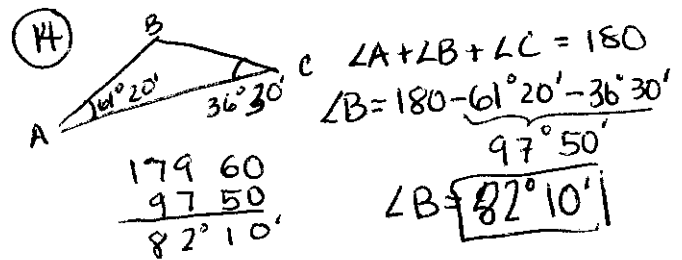 14
B
A
C
61° 20'
36° 30'
∠A + ∠B + ∠C = 180
∠B = 180 - 61° 20' - 36° 30'
97° 50'
179 60
97 50
82° 10'
∠B = 82° 10'